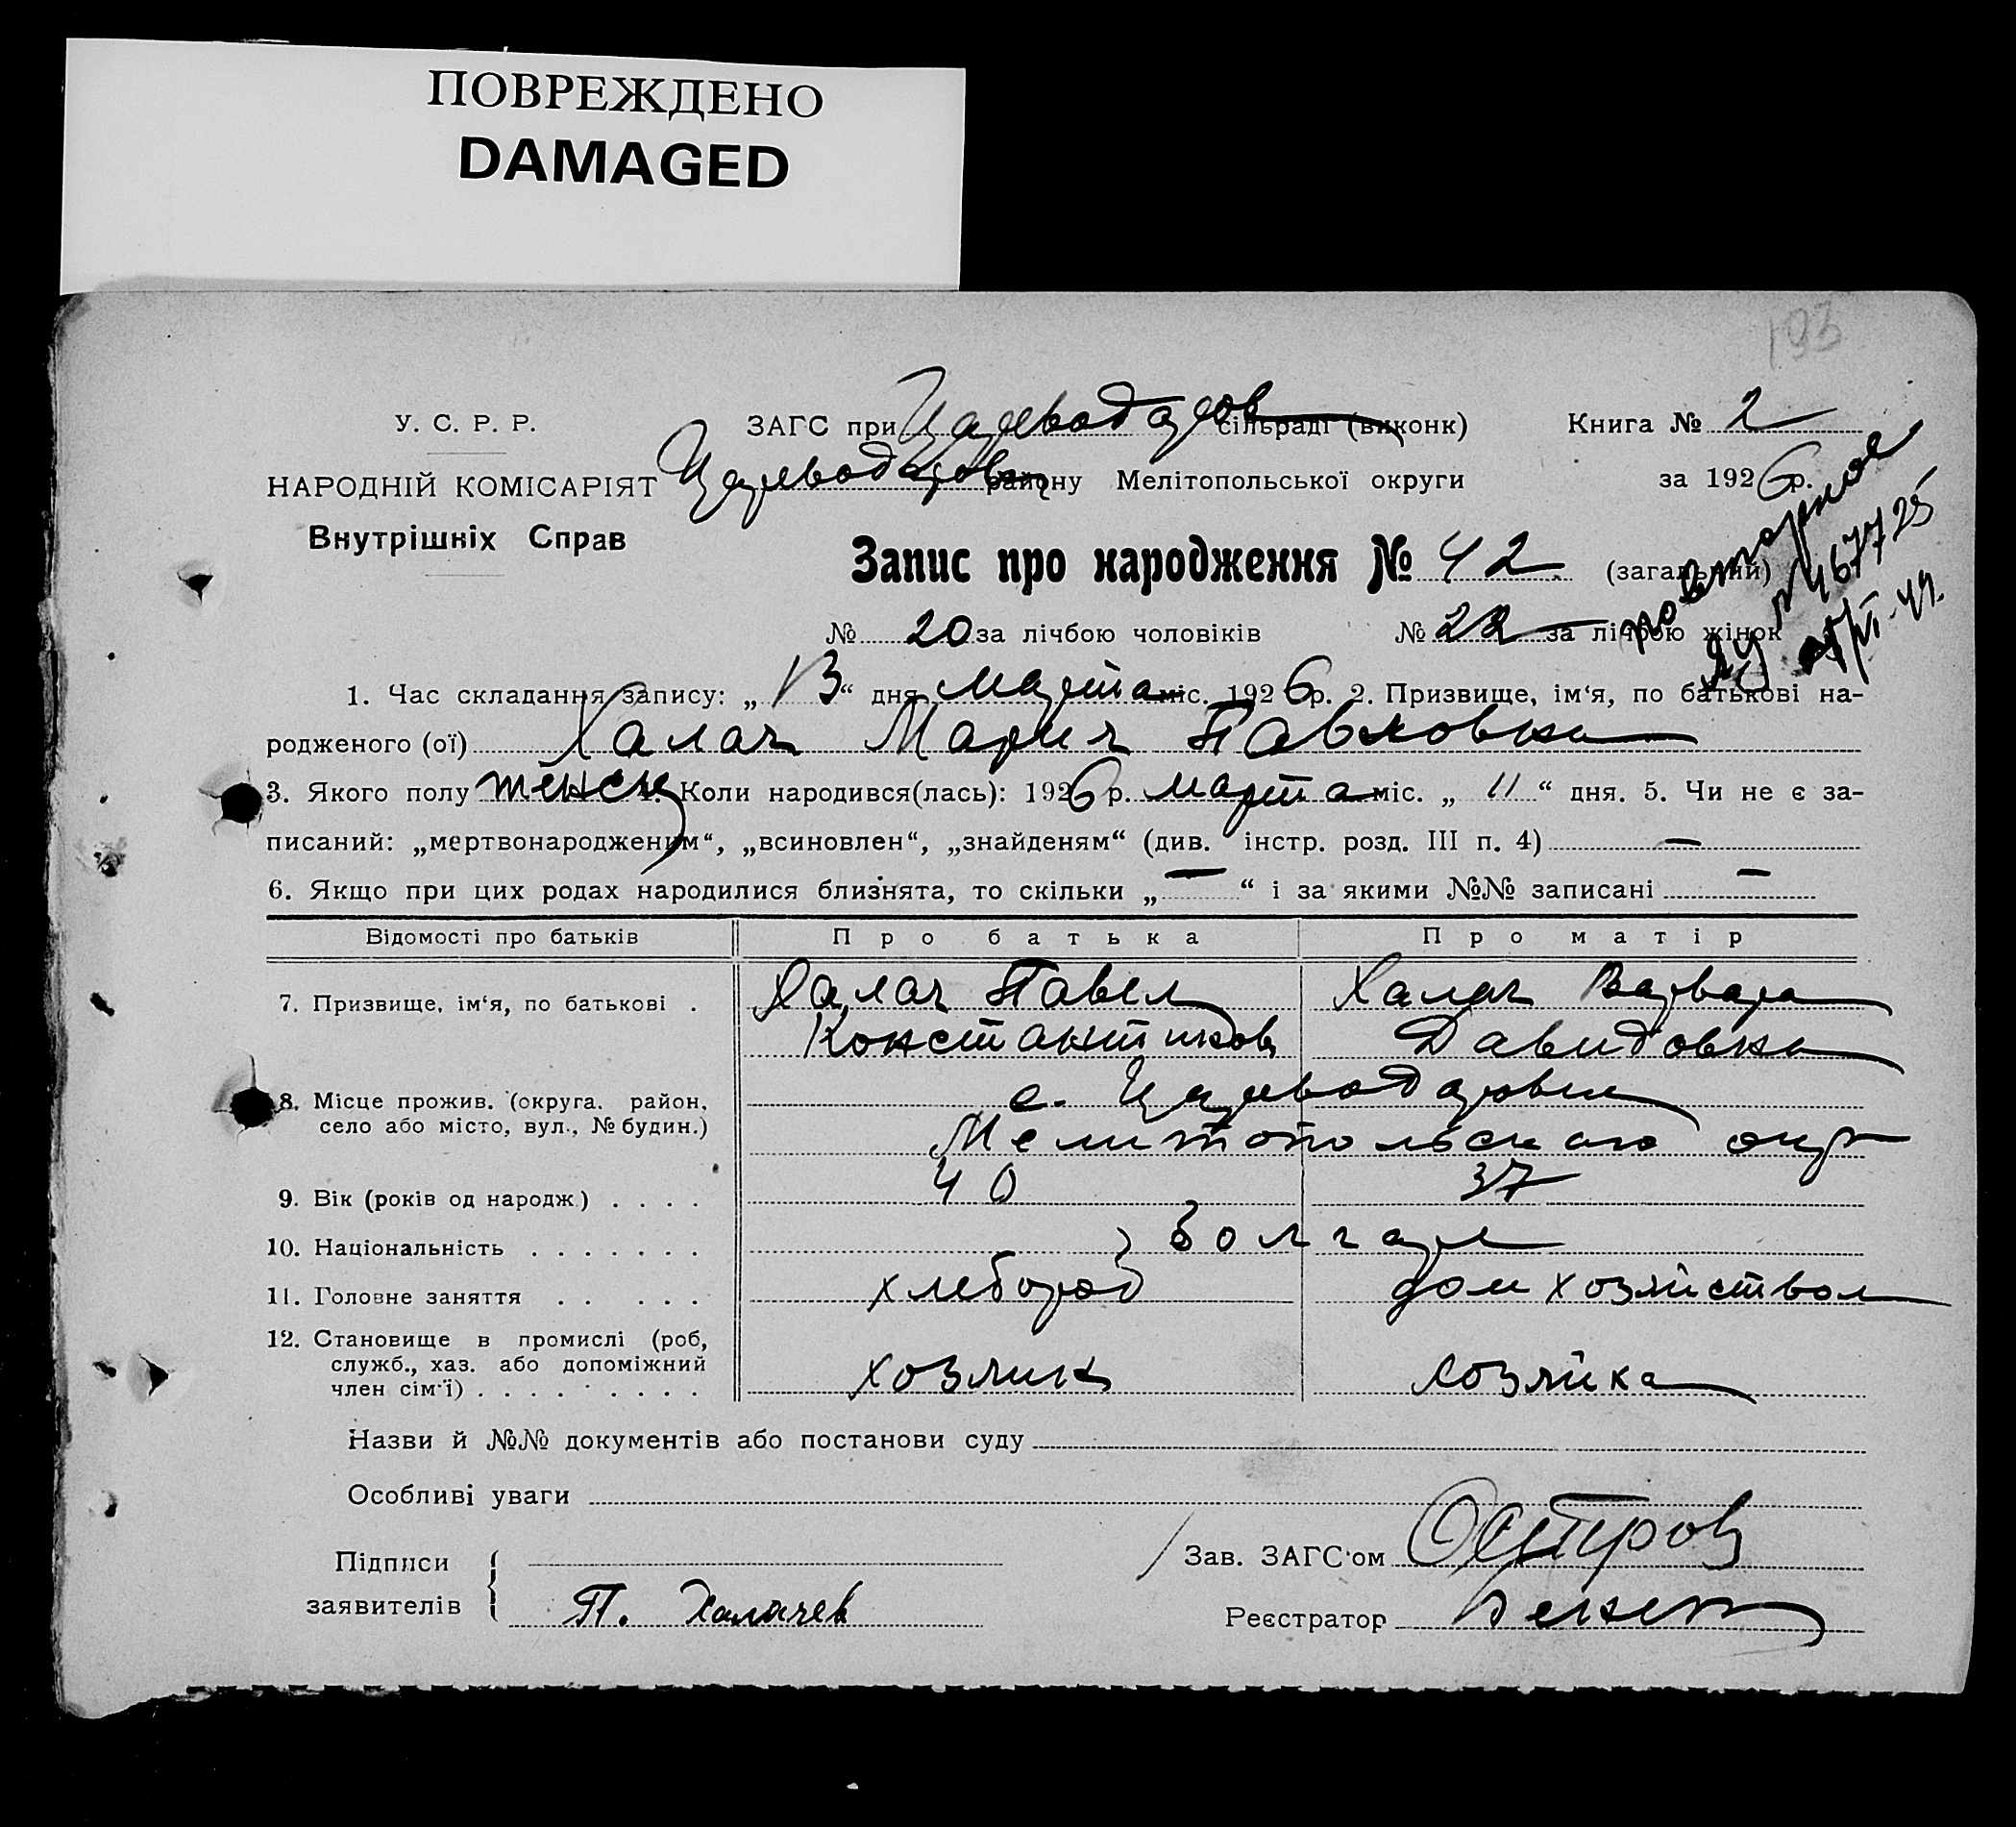 ПОВРЕЖДЕНО
DAMAGED
193
У. С. Р. Р.
НАРОДНІЙ КОМІСАРІЯТ
Внутрішніх Справ
ЗАГС при Цареводаров сільраді (виконк)
Цареводаров району Мелітопольської округи
Книга № 2
за 1926 р.
Запис про народження № 42 (загальний)
№ 20 за лічбою чоловіків № 22 за лічбою жінок
повторное
467725
1. Час складання запису: „13“ дня марта міс. 1926 р. 2. Призвище, ім‘я, по батькові на-
родженого (ої) Халач Мария Павловна
3. Якого полу женск 4. Коли народився(лась): 1926 р. марта міс. „11“ дня. 5. Чи не є за-
писаний: „мертвонародженим“, „всиновлен“, „знайденям“ (див. інстр. розд. III п. 4) —
6. Якщо при цих родах народилися близнята, то скільки „—“ і за якими №№ записані —
Відомості про батьків Про батька Про матір
7. Призвище, ім‘я, по батькові . Халач Павел Халач Варвара
Константинов Давидовна
8. Місце прожив. (округа, район, село або місто, вул., № будин.)
с. Цареводаровка
Мелитопольского окр
9. Вік (років од народж.) . . . . 40 37
10. Національність . . . . . . . болгаре
11. Головне заняття . . . . . хлебороб домхозяйством
12. Становище в промислі (роб,
служб., хаз. або допоміжний
член сім‘ї) . . . . . . . . . хозяин хозяйка
Назви й №№ документів або постанови суду
Особливі уваги
Підписи
заявителів
П. Халачев
Зав. ЗАГС‘ом Остров
Реєстратор